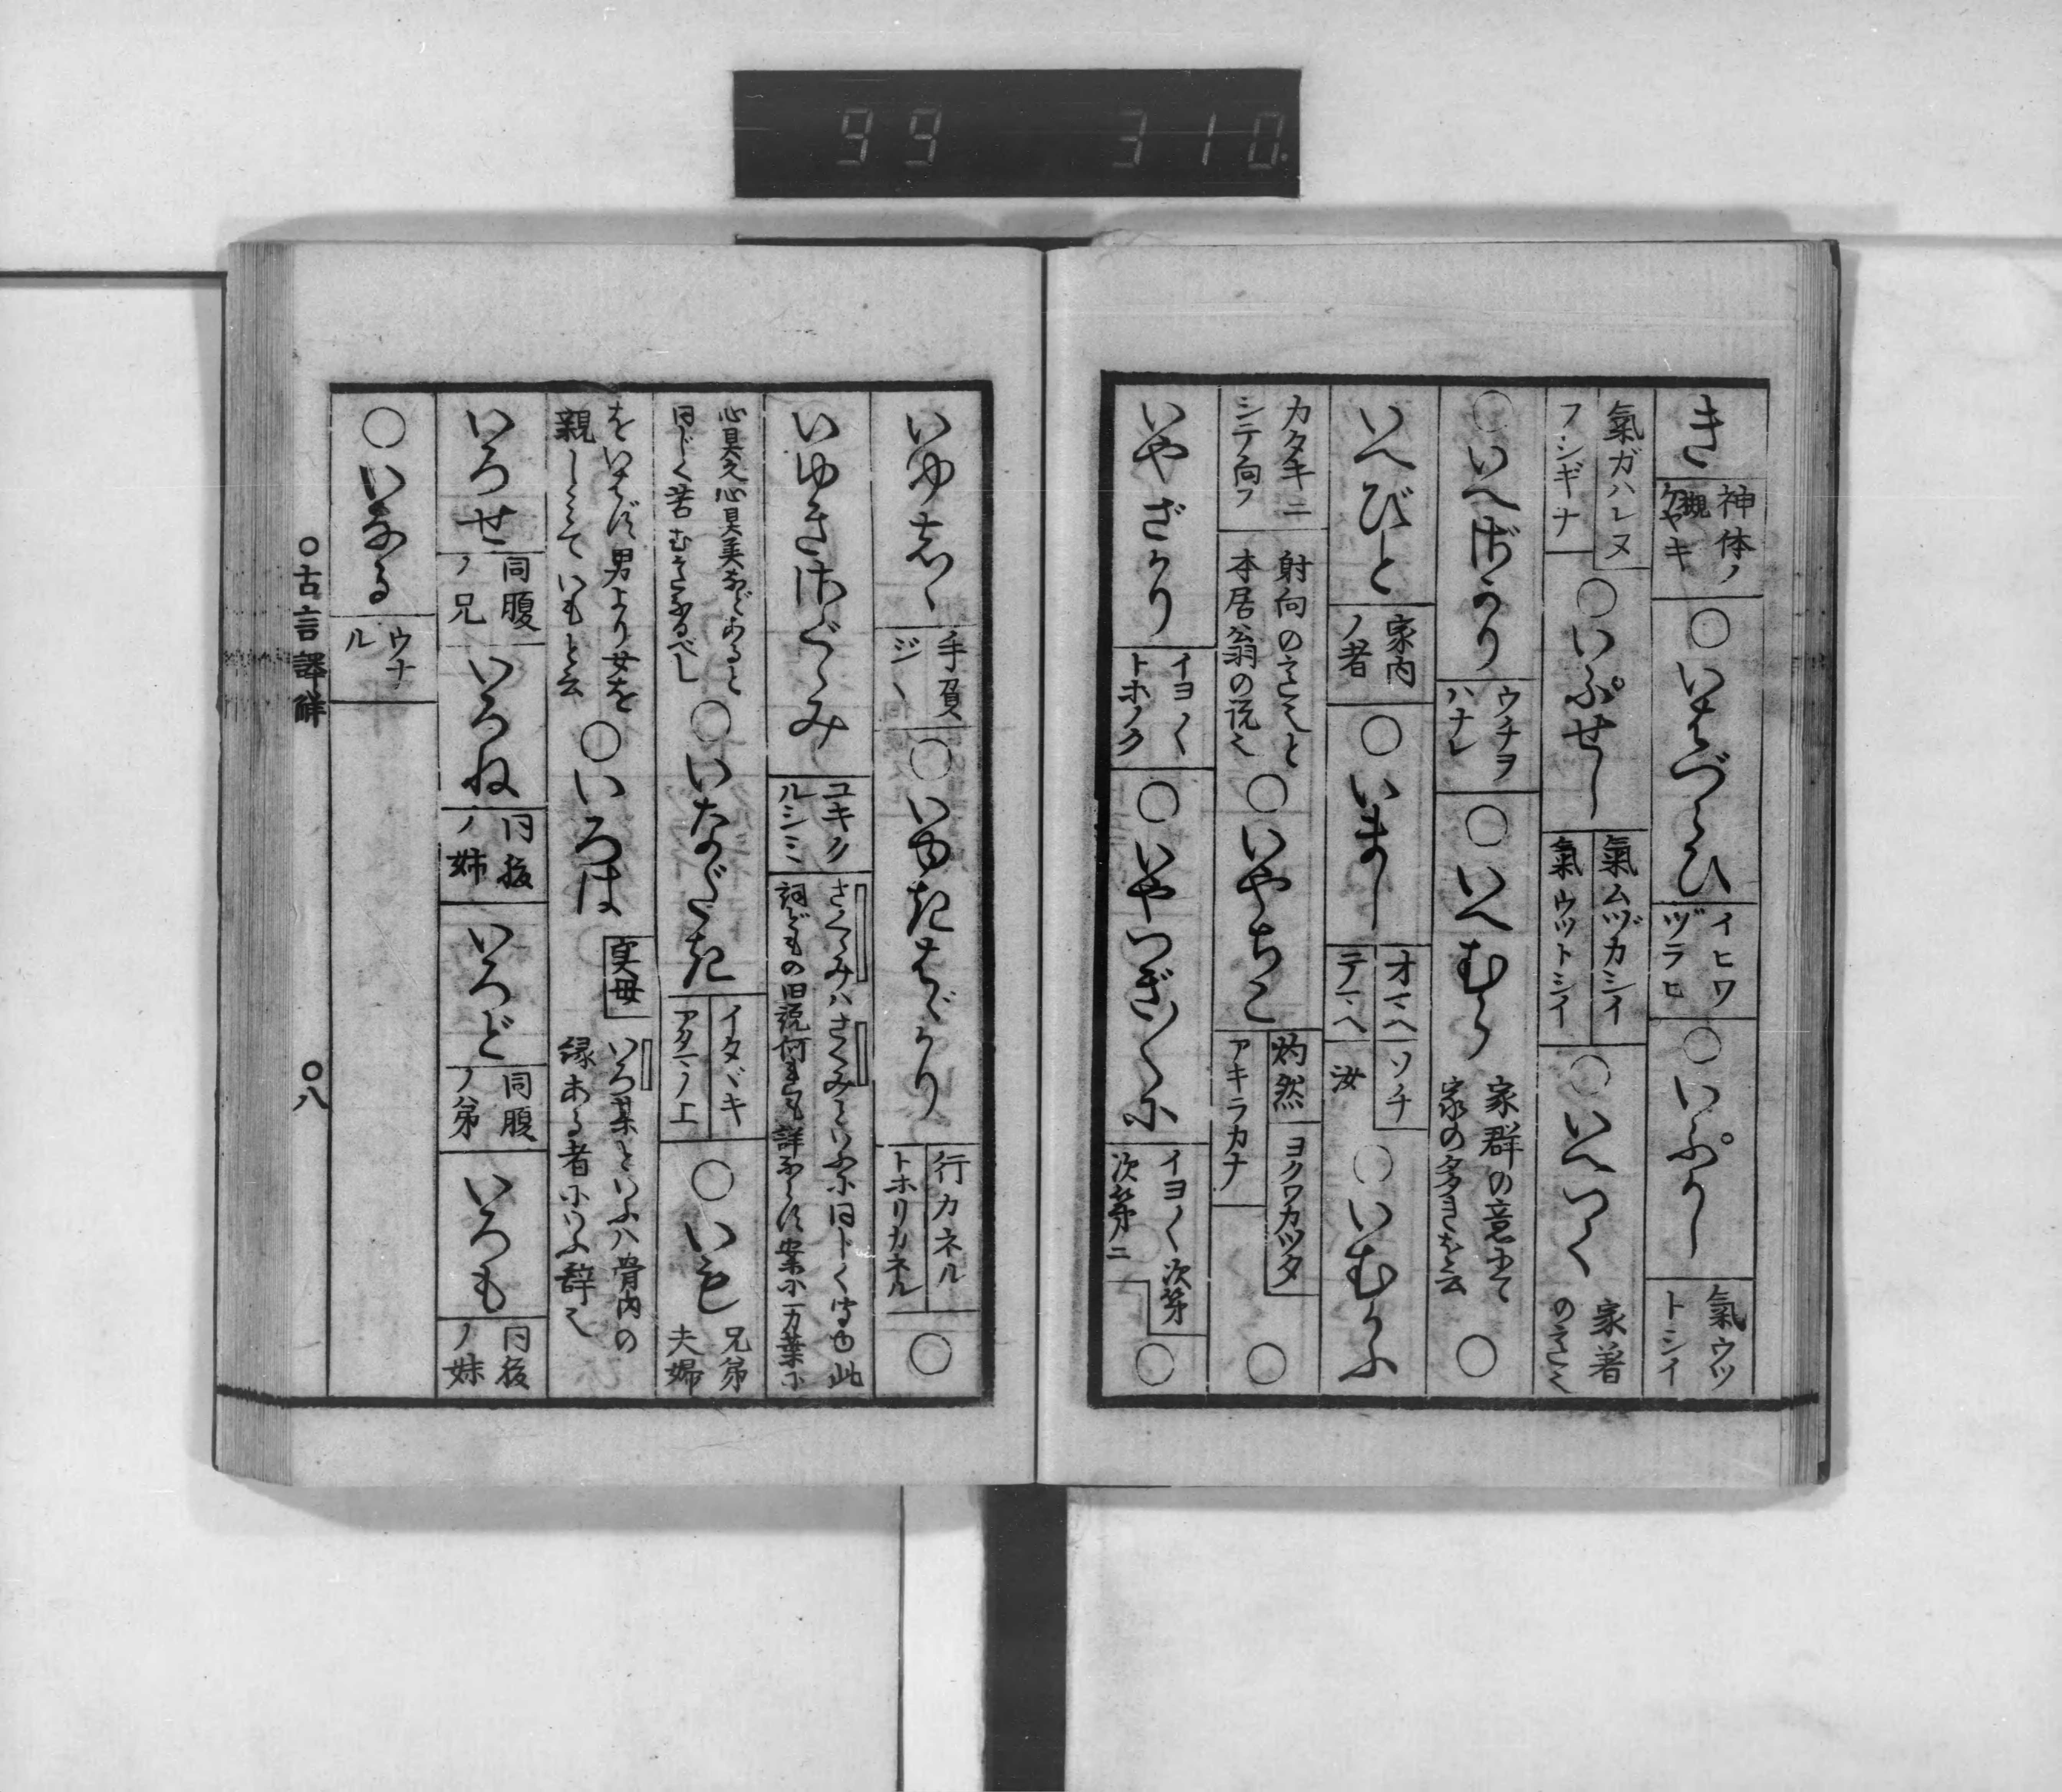 99 310
き 神体ノ槻ケヤキ ○いはづらひ イヒワヅラヒ ○いぷかし 氣ウットシイ
氣ガハレヌ フシギナ ○いぷせし 氣ムヅカシイ 氣ウットシイ ○いへつく 家着のこと
○いへざかり ウチヲハナレ ○いへむら 家群の意にて家の多きを云 ○
いへびと 家内ノ者 ○いまし オマヘ ソチ テマヘ 汝 ○いむかふ
カタキニシテ向フ 射向のことと本居翁の説 ○いやちこ 灼然 ヨクワカツタ アキラカナ ○
いやざかり イヨ〱トホノク ○いやつぎ〱に イヨ〱次第次第ニ ○
いゆしゝ 手負ジヽ ○いゆきはゞかり 行カネル トホリカネル ○
いゆきさぐゝみ ユキクルシミ さくゝみハさくみといふに同じく 詞どもの旧説何れも詳ならず案に万葉に
などあると同じく苦むことなるべし ○いたゞき イタヾキ アタマノ上 ○いも 兄弟夫婦
をいはず男より女を親しみていもと云 ○いろは 真母 いろ某といふハ骨肉の縁ある者にいふ辞
いろせ 同腹ノ兄 いろね 同腹ノ姉 いろど 同腹ノ弟 いろも 同腹ノ妹
○いなる ウナル
○古言譯解 ○八